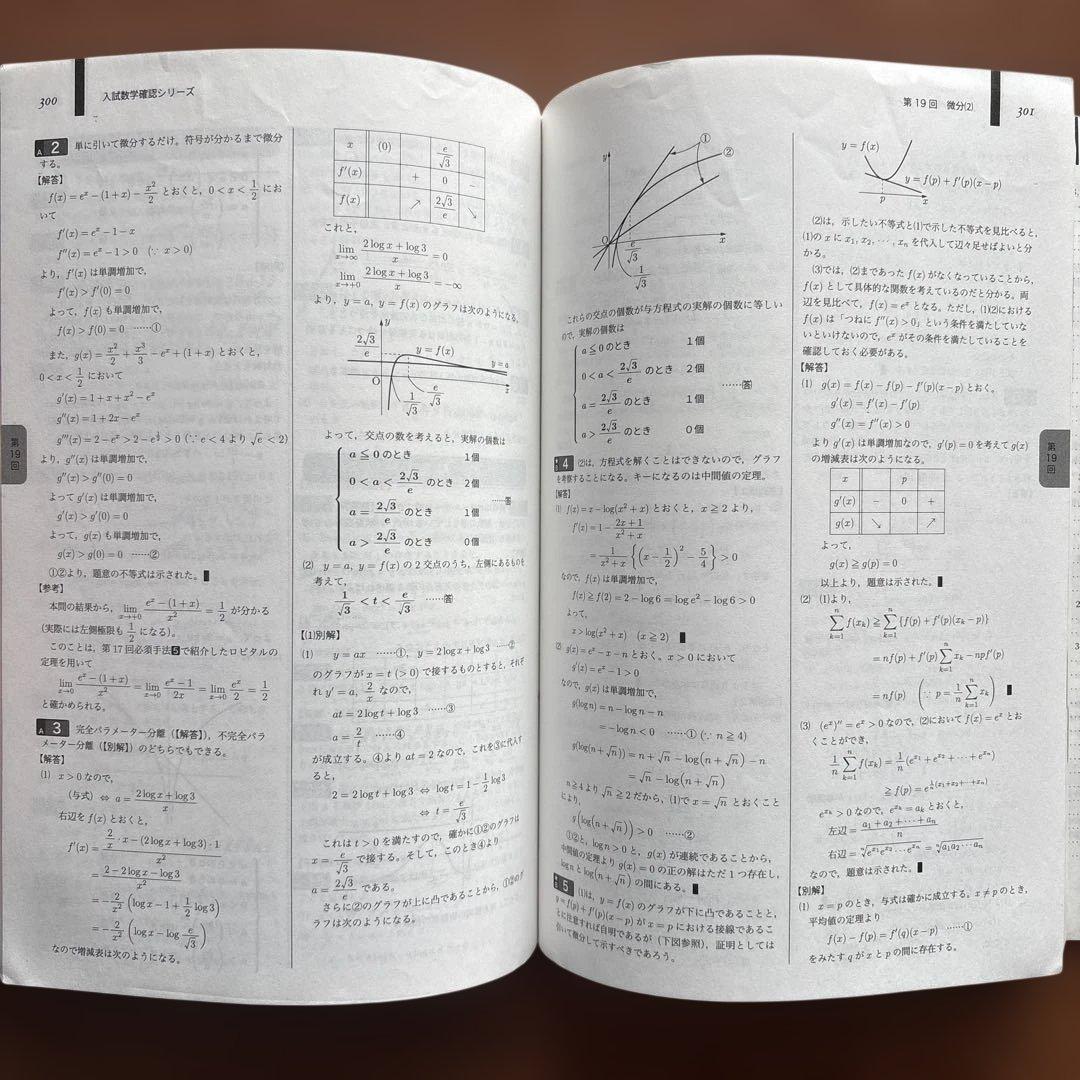 300
入試数学確認シリーズ
A 2 単に引いて微分するだけ。符号が分かるまで微分
する。
【解答】
f(x)=e^x-(1+x)-x^2/2 とおくと，0<x<1/2 にお
いて
f'(x)=e^x-1-x
f''(x)=e^x-1>0 (∵ x>0)
より，f'(x) は単調増加で，
f'(x)>f'(0)=0
よって，f(x) も単調増加で，
f(x)>f(0)=0 ……①
また，g(x)=x^2/2+x^3/3-e^x+(1+x) とおくと，
0<x<1/2 において
g'(x)=1+x+x^2-e^x
g''(x)=1+2x-e^x
g'''(x)=2-e^x>2-e^{1/2}>0 (∵ e<4 より √e<2)
より，g''(x) は単調増加で，
g''(x)>g''(0)=0
よって g'(x) は単調増加で，
g'(x)>g'(0)=0
よって，g(x) も単調増加で，
g(x)>g(0)=0 ……②
①②より，題意の不等式は示された。
【参考】
本問の結果から，lim x→+0 (e^x-(1+x))/x^2=1/2 が分かる
(実際には左側極限も 1/2 になる)。
このことは，第17回必須手法5で紹介したロピタルの
定理を用いて
lim x→0 (e^x-(1+x))/x^2=lim x→0 (e^x-1)/2x=lim x→0 e^x/2=1/2
と確かめられる。
A 3 完全パラメーター分離(【解答】)，不完全パラ
メーター分離(【別解】)のどちらでもできる。
【解答】
(1) x>0 なので，
(与式) ⇔ a=(2log x+log 3)/x
右辺を f(x) とおくと，
f'(x)=(2/x·x-(2log x+log 3)·1)/x^2
=(2-2log x-log 3)/x^2
=-2/x^2(log x-1+1/2 log 3)
=-2/x^2(log x-log e/√3)
なので増減表は次のようになる。
x (0) e/√3
f'(x) + 0 -
f(x) ↗ 2√3/e ↘
これと，
lim x→∞ (2log x+log 3)/x=0
lim x→+0 (2log x+log 3)/x=-∞
より，y=a, y=f(x) のグラフは次のようになる。
y
2√3/e
y=f(x)
y=a
O
x
1/√3
e/√3
よって，交点の数を考えると，実解の個数は
a≦0 のとき 1個
0<a<2√3/e のとき 2個
……答
a=2√3/e のとき 1個
a>2√3/e のとき 0個
(2) y=a, y=f(x) の2交点のうち，左側にあるものを
考えて，
1/√3<t<e/√3 ……答
【(1)別解】
(1) y=ax ……①, y=2log x+log 3 ……②
のグラフが x=t(>0) で接するものとすると，それぞ
れ y'=a, 2/x なので，
at=2log t+log 3 ……③
a=2/t ……④
が成立する。④より at=2 なので，これを③に代入す
ると，
2=2log t+log 3 ⇔ log t=1-1/2 log 3
⇔ t=e/√3
これは t>0 を満たすので，確かに①②のグラフは
x=e/√3 で接する。そして，このとき④より
a=2√3/e である。
さらに②のグラフが上に凸であることから，①②のグ
ラフは次のようになる。
第19回
第19回 微分(2)
301
y
①
②
O
x
e/√3
1/√3
これらの交点の個数が与方程式の実解の個数に等しい
ので，実解の個数は
a≦0 のとき 1個
0<a<2√3/e のとき 2個
……答
a=2√3/e のとき 1個
a>2√3/e のとき 0個
4 (2)は，方程式を解くことはできないので，グラフ
を考察することになる。キーになるのは中間値の定理。
【解答】
(1) f(x)=x-log(x^2+x) とおくと，x≧2 より，
f'(x)=1-(2x+1)/(x^2+x)
=1/(x^2+x){(x-1/2)^2-5/4}>0
なので，f(x) は単調増加で，
f(x)≧f(2)=2-log 6=log e^2-log 6>0
よって，
x>log(x^2+x) (x≧2)
(2) g(x)=e^x-x-n とおく。x>0 において
g'(x)=e^x-1>0
なので，g(x) は単調増加で，
g(log n)=n-log n-n
=-log n<0 ……① (∵ n≧4)
g(log(n+√n))=n+√n-log(n+√n)-n
=√n-log(n+√n)
n≧4 より √n≧2 だから，(1)で x=√n とおくこと
により，
g(log(n+√n))>0 ……②
①②と，log n>0 と，g(x) が連続であることから，
中間値の定理より g(x)=0 の正の解はただ1つ存在し，
log n と log(n+√n) の間にある。
5 (1)は，y=f(x) のグラフが下に凸であることと，
y=f(p)+f'(p)(x-p) が x=p における接線であるこ
とに注意すれば自明であるが（下図参照），証明としては
引いて微分して示すべきであろう。
y=f(x)
y=f(p)+f'(p)(x-p)
p
x
(2)は，示したい不等式と(1)で示した不等式を見比べると，
(1)の x に x_1, x_2, …, x_n を代入して辺々足せばよいと分
かる。
(3)では，(2)まであった f(x) がなくなっていることから，
f(x) として具体的な関数を考えているのだと分かる。両
辺を見比べて，f(x)=e^x となる。ただし，(1)(2)における
f(x) は「つねに f''(x)>0」という条件を満たしていな
いといけないので，e^x がその条件を満たしていることを
確認しておく必要がある。
【解答】
(1) g(x)=f(x)-f(p)-f'(p)(x-p) とおく。
g'(x)=f'(x)-f'(p)
g''(x)=f''(x)>0
より g'(x) は単調増加なので，g'(p)=0 を考えて g(x)
の増減表は次のようになる。
x p
g'(x) - 0 +
g(x) ↘ ↗
よって，
g(x)≧g(p)=0
以上より，題意は示された。
(2) (1)より，
Σ_{k=1}^{n} f(x_k)≧Σ_{k=1}^{n}{f(p)+f'(p)(x_k-p)}
=nf(p)+f'(p)Σ_{k=1}^{n} x_k-npf'(p)
=nf(p) (∵ p=1/n Σ_{k=1}^{n} x_k)
(3) (e^x)''=e^x>0 なので，(2)において f(x)=e^x とお
くことができ，
1/n Σ_{k=1}^{n} f(x_k)=1/n(e^{x_1}+e^{x_2}+…+e^{x_n})
≧f(p)=e^{1/n(x_1+x_2+…+x_n)}
e^{x_k}>0 なので，e^{x_k}=a_k とおくと，
左辺=(a_1+a_2+…+a_n)/n
右辺=ⁿ√(e^{x_1}e^{x_2}…e^{x_n})=ⁿ√(a_1a_2…a_n)
なので，題意は示された。
【別解】
(1) x=p のとき，与式は確かに成立する。x≠p のとき，
平均値の定理より
f(x)-f(p)=f'(q)(x-p) ……①
をみたす q が x と p の間に存在する。
第19回